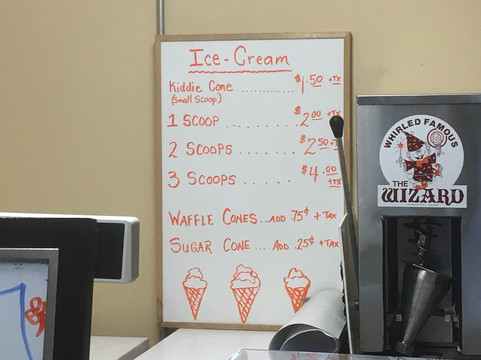 Ice-Cream
Kiddie Cone ............ $1.50 +TX
(Small Scoop)
1 SCOOP ....... $2.00 +TX
2 SCOOPS ...... $2.50 +TX
3 SCOOPS ...... $4.00 +TX
WAFFLE CONES...ADD .75¢ + TAX
SUGAR CONE ....ADD .25¢ + TAX
WHIRLED FAMOUS
THE
WIZARD